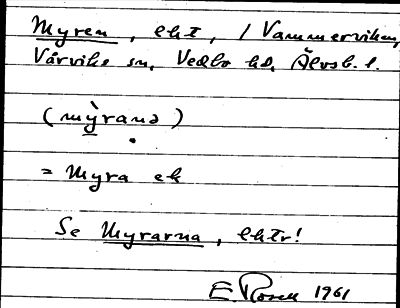 Myren, lht, / Vammerviken,
Värviks sn, Vedbo hd, Älvsb. l.
(mỳranə)
= Myra ek
Se Myrarna, lhtr!
E. Rosell 1961